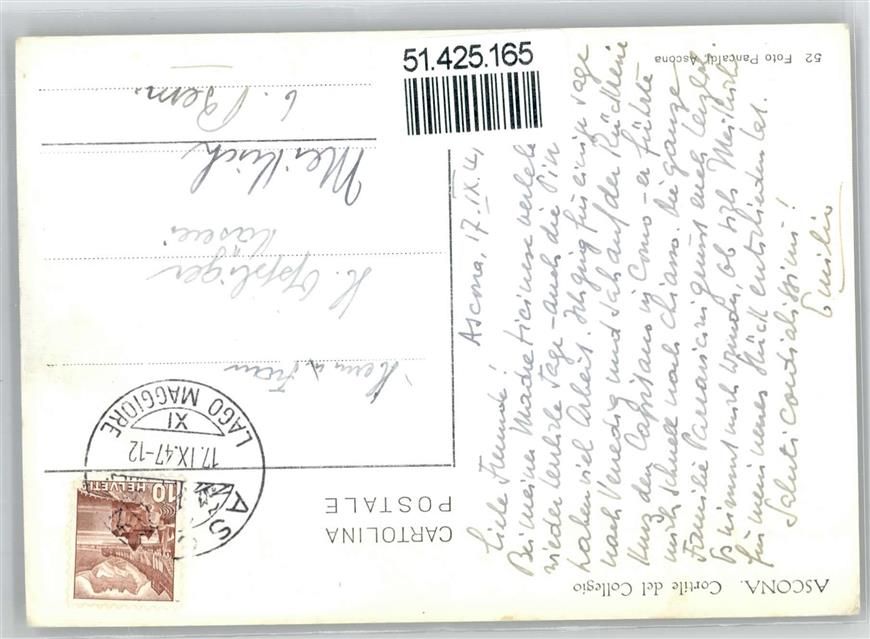 51.425.165
ASCONA. Cortile del Collegio
52 Foto Pancaldi, Ascona
CARTOLINA
POSTALE
HELVETIA
10
ASCONA
17.IX.47-12
XI
LAGO MAGGIORE
Ascona, 17.IX.47
Liebe Freunde!
Bei meiner Madre ticinese verlebe
wieder herrliche Tage - auch die Pin
haben viel Arbeit. Ich ging für einige Tage
nach Venedig und sah auf der Rückreise
kurz den Capitano in Como - er führte
mich schnell nach Chiasso. Die ganze
Familie grüsst euch herzlich.
nimmt mich wunder, ob sich Meikirch
für mein neues Stück entschieden hat.
Saluti cordialissimi!
Emilio
Herrn u. Frau
H. Öppliger
Käserei
Meikirch
b. Bern.